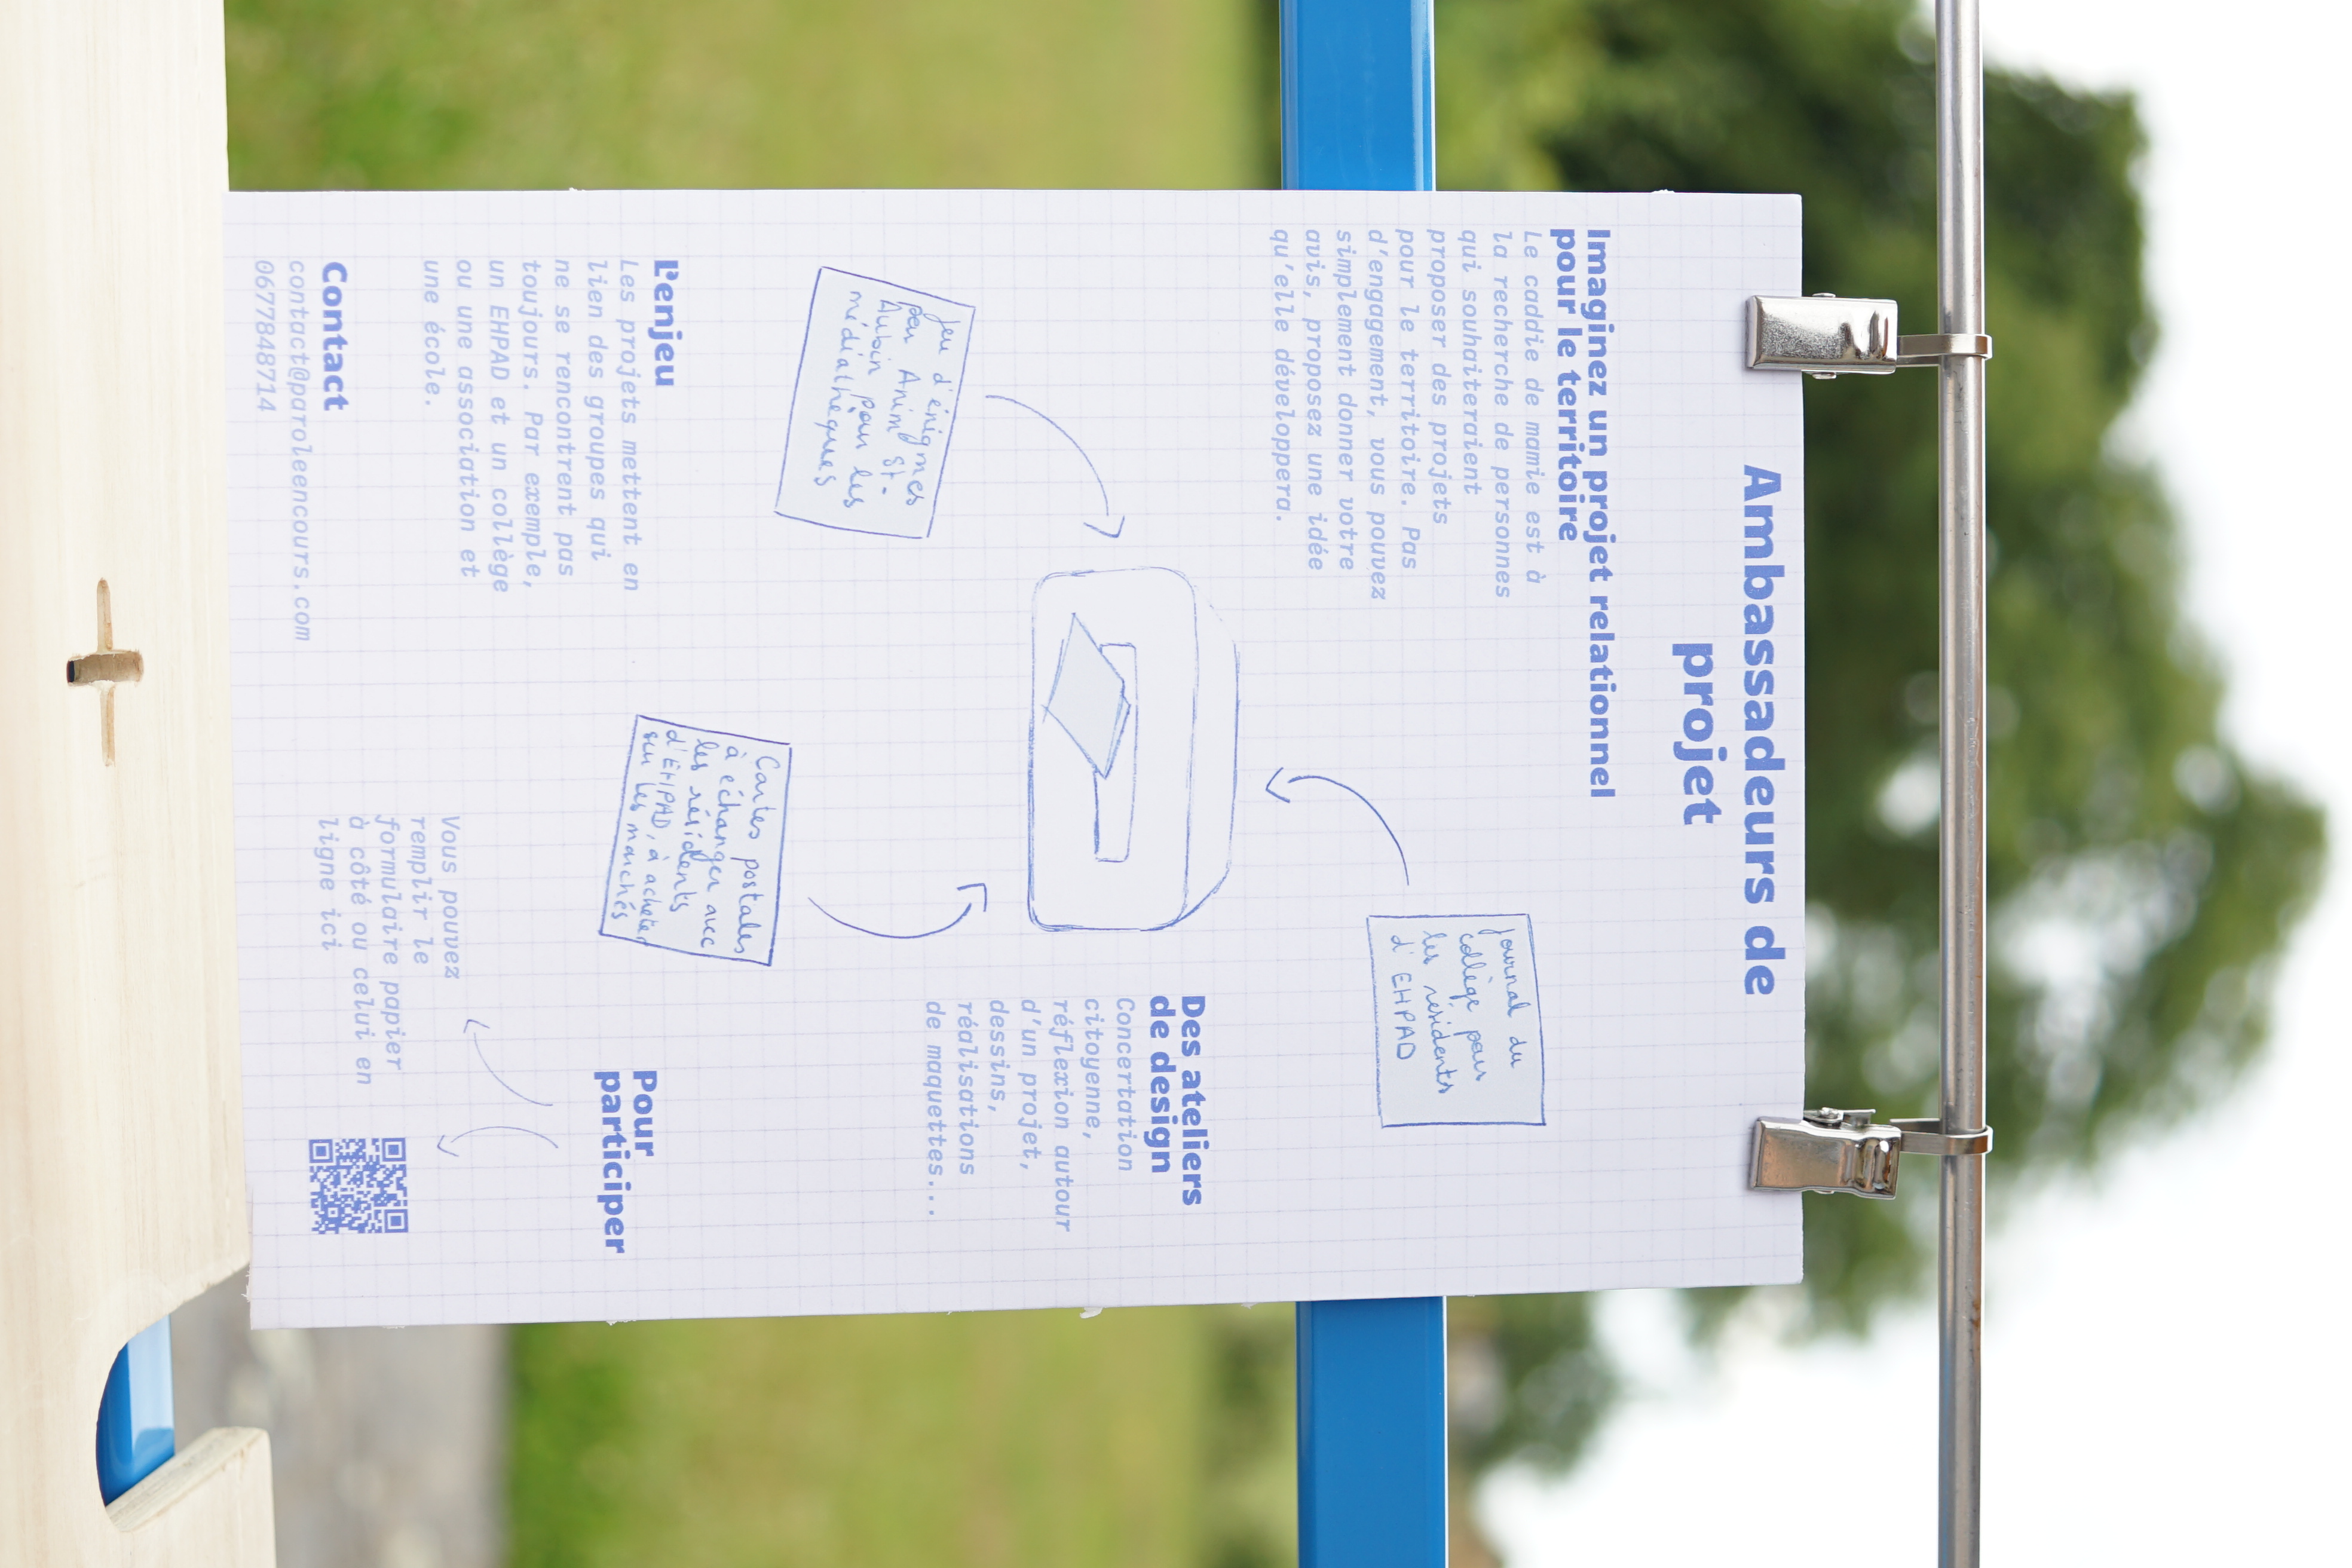 Ambassadeurs de
projet
Imaginez un projet relationnel
pour le territoire
Le caddie de mamie est à
la recherche de personnes
qui souhaiteraient
proposer des projets
pour le territoire. Pas
d'engagement, vous pouvez
simplement donner votre
avis, proposez une idée
qu'elle développera.
Journal du
collège pour
les résidents
d'EHPAD
Des ateliers
de design
Concertation
citoyenne,
réflexion autour
d'un projet,
dessins,
réalisations
de maquettes...
Jeu d'énigmes
par Anim St-
Aubin pour les
médiathèques
Cartes postales
à échanger avec
les résidents
d'EHPAD, à acheter
sur les marchés
L'enjeu
Les projets mettent en
lien des groupes qui
ne se rencontrent pas
toujours. Par exemple,
un EHPAD et un collège
ou une association et
une école.
Pour
participer
Vous pouvez
remplir le
formulaire papier
à côté ou celui en
ligne ici
Contact
contact@paroleencours.com
0677848714